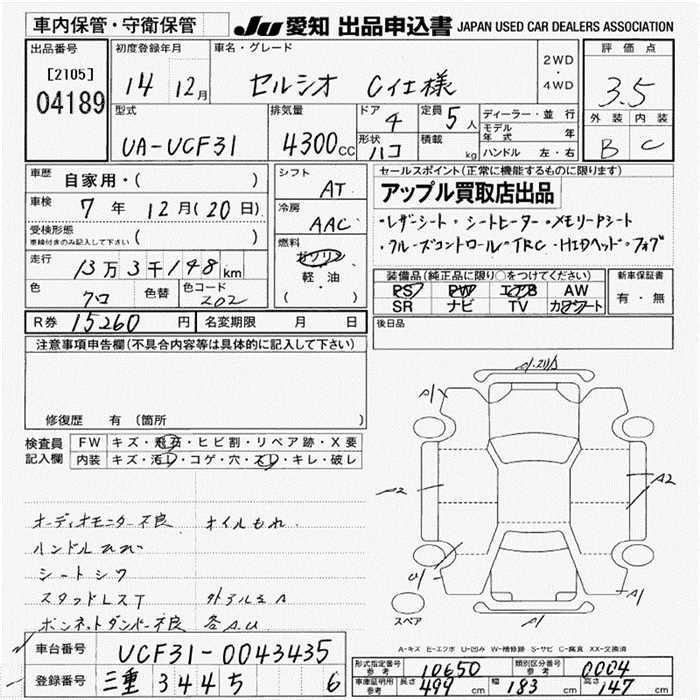 車内保管・守衛保管 JU 愛知 出品申込書 JAPAN USED CAR DEALERS ASSOCIATION
出品番号 初度登録年月 車名・グレード 2WD・4WD 評価点
[2105] 14 12月 セルシオ C仕様 3.5
04189 外装 内装
型式 排気量 ドア 4 定員 5人 ディーラー・並行 B C
UA-UCF31 4300cc 形状 ハコ 積載 kg モデル年式 年
ハンドル 左・右
車歴 自家用・( ) シフト AT セールスポイント(正常に機能するものに限ります)
アップル買取店出品
車検 7年 12月(20日) 冷房 AAC ・レザーシート・シートヒーター・メモリーPシート
受検形態 車検付きのみ記入して下さい ( ) ・クルーズコントロール・TRC・HIDヘッド・フォグ
走行 13万3千148km 燃料 ガソリン 軽・油 ( )
装備品(純正品に限り○をつけてください) 新車保証書
PS PW エアB AW 有・無
SR ナビ TV カワシート
色 クロ 色替 色コード 202
R券 15260円 名変期限 月 日 後日品
注意事項申告欄(不具合内容等は具体的に記入して下さい)
修復歴 有 (箇所 )
検査員記入欄 FW キズ・飛石・ヒビ割・リペア跡・X要
内装 キズ・汚レ・コゲ・穴・スレ・キレ・破レ
A1
A1
A2 A2
U1 A1
A1
オーディオモニター不良 オイルもれ
ハンドルひび
シートシワ
スタッドレスT
ボンネットダンパー不良 各A.U
スペア
A-キズ E-エクボ U-凹み W-補修跡 S-サビ C-腐食 XX-交換済
車台番号 UCF31-0043435
登録番号 三重 344 5 6
形式指定番号 参考 10650 類別区分番号 参考 0004
車庫証明用 参考 長さ 499cm 幅 183cm 高さ 147cm